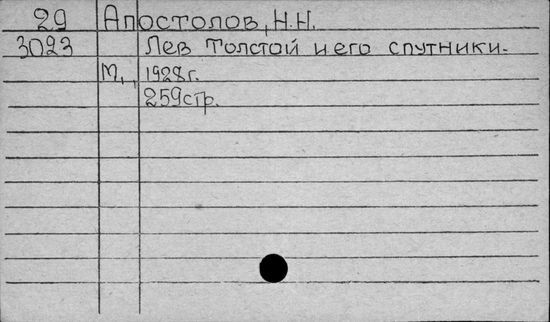 29 Апостолов, Н.Н.
3023 Лев Толстой и его спутники.
М., 1928г.
259стр.